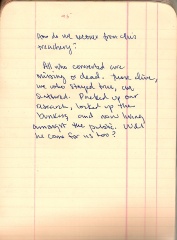 How do we recover from this
treachery?
All who connected are
missing or dead. Those alive,
we who stayed true, are
scattered. Packed up our
research, locked up the
bunkers and now living
amongst the public. Will
he come for us too?